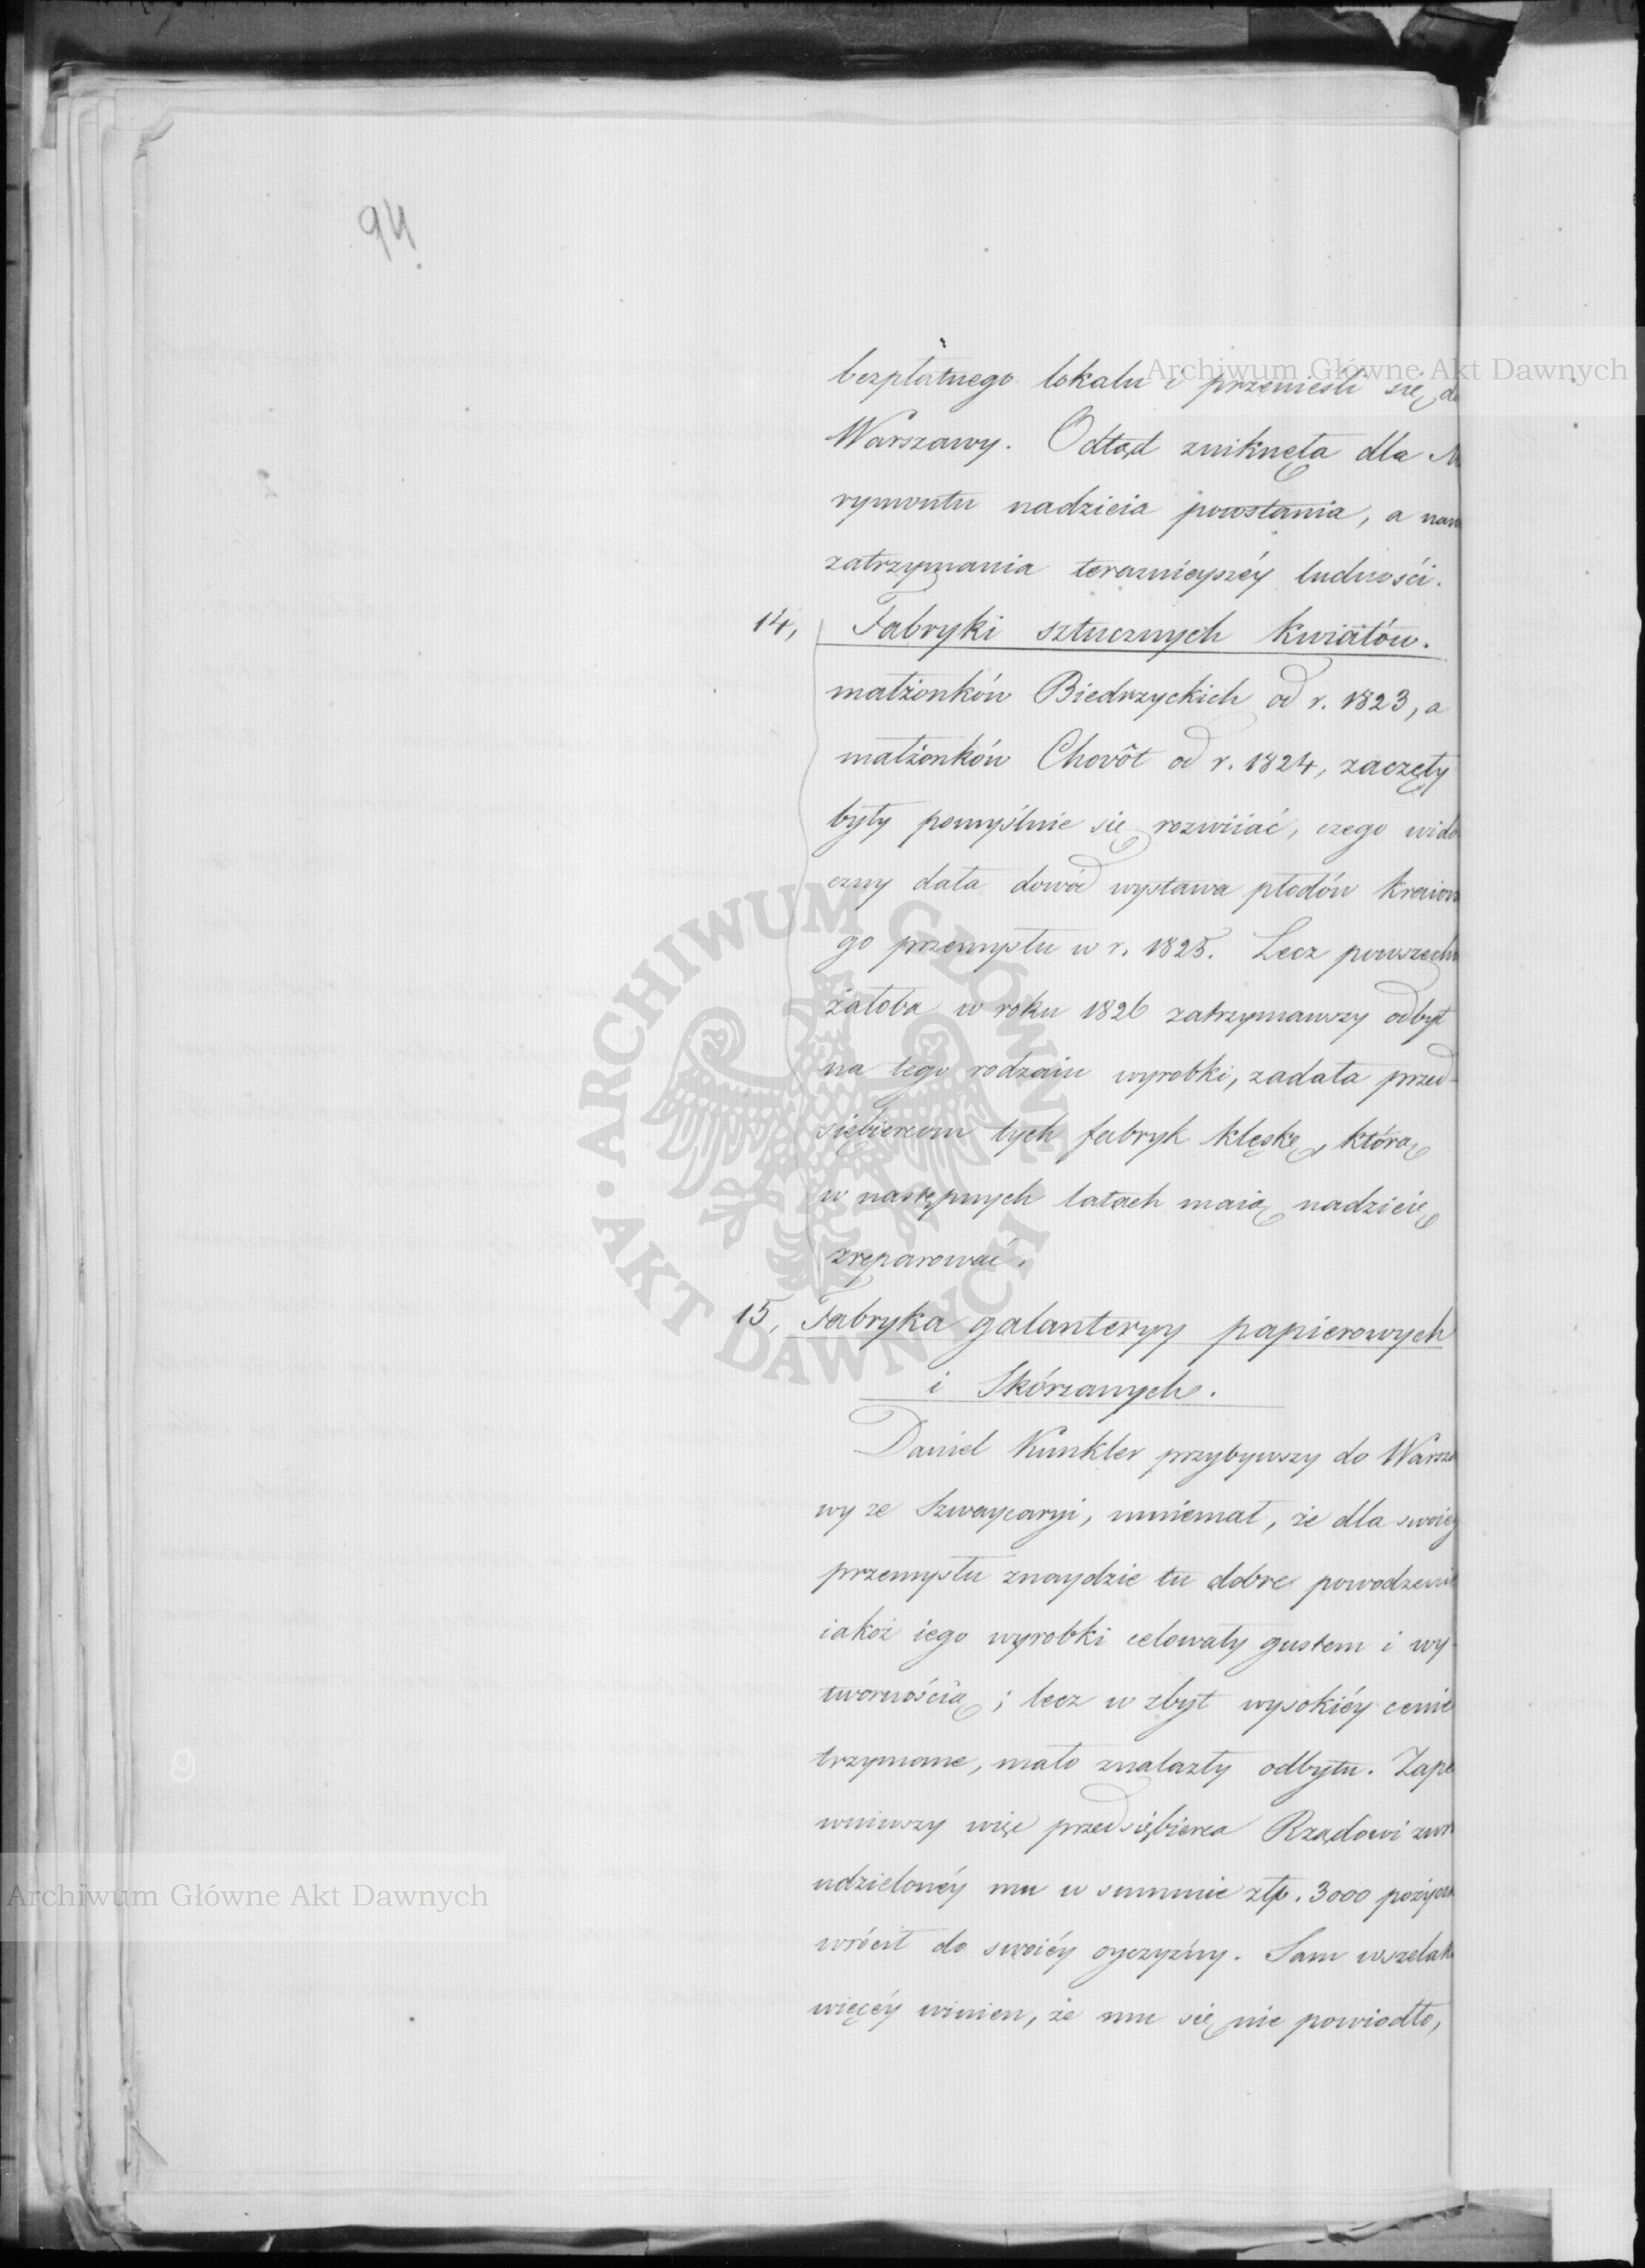 94.
bezpłatnego lokalu i przenieśli się do
Warszawy. Odtąd zniknęła dla M
rymontu nadzieia powstania, a naw
zatrzymania teraznieyszéy ludności.
14, Fabryki sztucznych kwiatów.
małżonków Biedrzyckich od r. 1823, a
małżonków Chovôt od r. 1824, zaczęły
były pomyślnie się rozwiiać, czego wido
czny dała dowód wystawa płodów kraiow
go przemysłu w r. 1825. Lecz powszechn
żałoba w roku 1826 zatrzymawszy odbyt
na tego rodzaiu wyrobki, zadała przed-
siębiercom tych fabryk klęskę, którą
w następnych latach maią nadzieię
zreparować.
15, Fabryka galanteryy papierowych
i Skórzanych.
Daniel Kunkler przybywszy do Warsza
wy ze Szwaycaryi, mniemał, że dla swoiéy
przemysłu znaydzie tu dobre powodzenie
iakoż iego wyrobki celowały gustem i wy-
twornością; lecz w zbyt wysokiéy cenie
trzymane, mało znalazły odbytu. Zape
wniwszy więc przedsiębierca Rządowi zwr
udzielonéy mu w summie złp. 3000 pożycz
wrócił do swoiéy oyczyzny. Sam wszelak
więcéy winien, że mu się nie powiodło,
Archiwum Główne Akt Dawnych
ARCHIWUM GŁÓWNE • AKT DAWNYCH •
Archiwum Główne Akt Dawnych